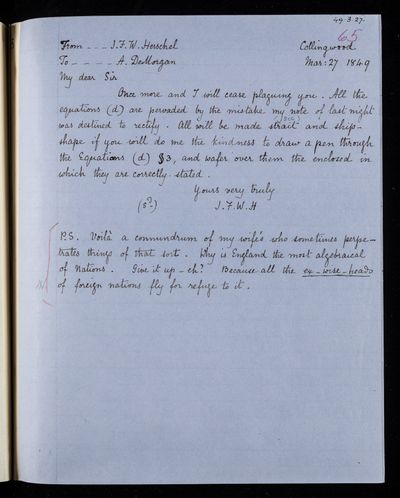 49.3.27.
65
From - - - J.F.W. Herschel Collingwood
To - - - - - A. DeMorgan Mar: 27 1849
My dear Sir
Once more and I will cease plaguing you. All the
equations (d) are pervaded by the mistake my note of last night
was destined to rectify. All will be made strait (sic) and ship-
shape if you will do me the kindness to draw a pen through
the Equations (d) §3, and wafer over them the enclosed in
which they are correctly stated.
Yours very truly
J.F.W.H
P.S. Voilà a conundrum of my wife's who sometimes perpe-
trates things of that sort. Why is England the most algebraical
of Nations. Give it up - eh? Because all the ex-wise-heads
of foreign nations fly for refuge to it.